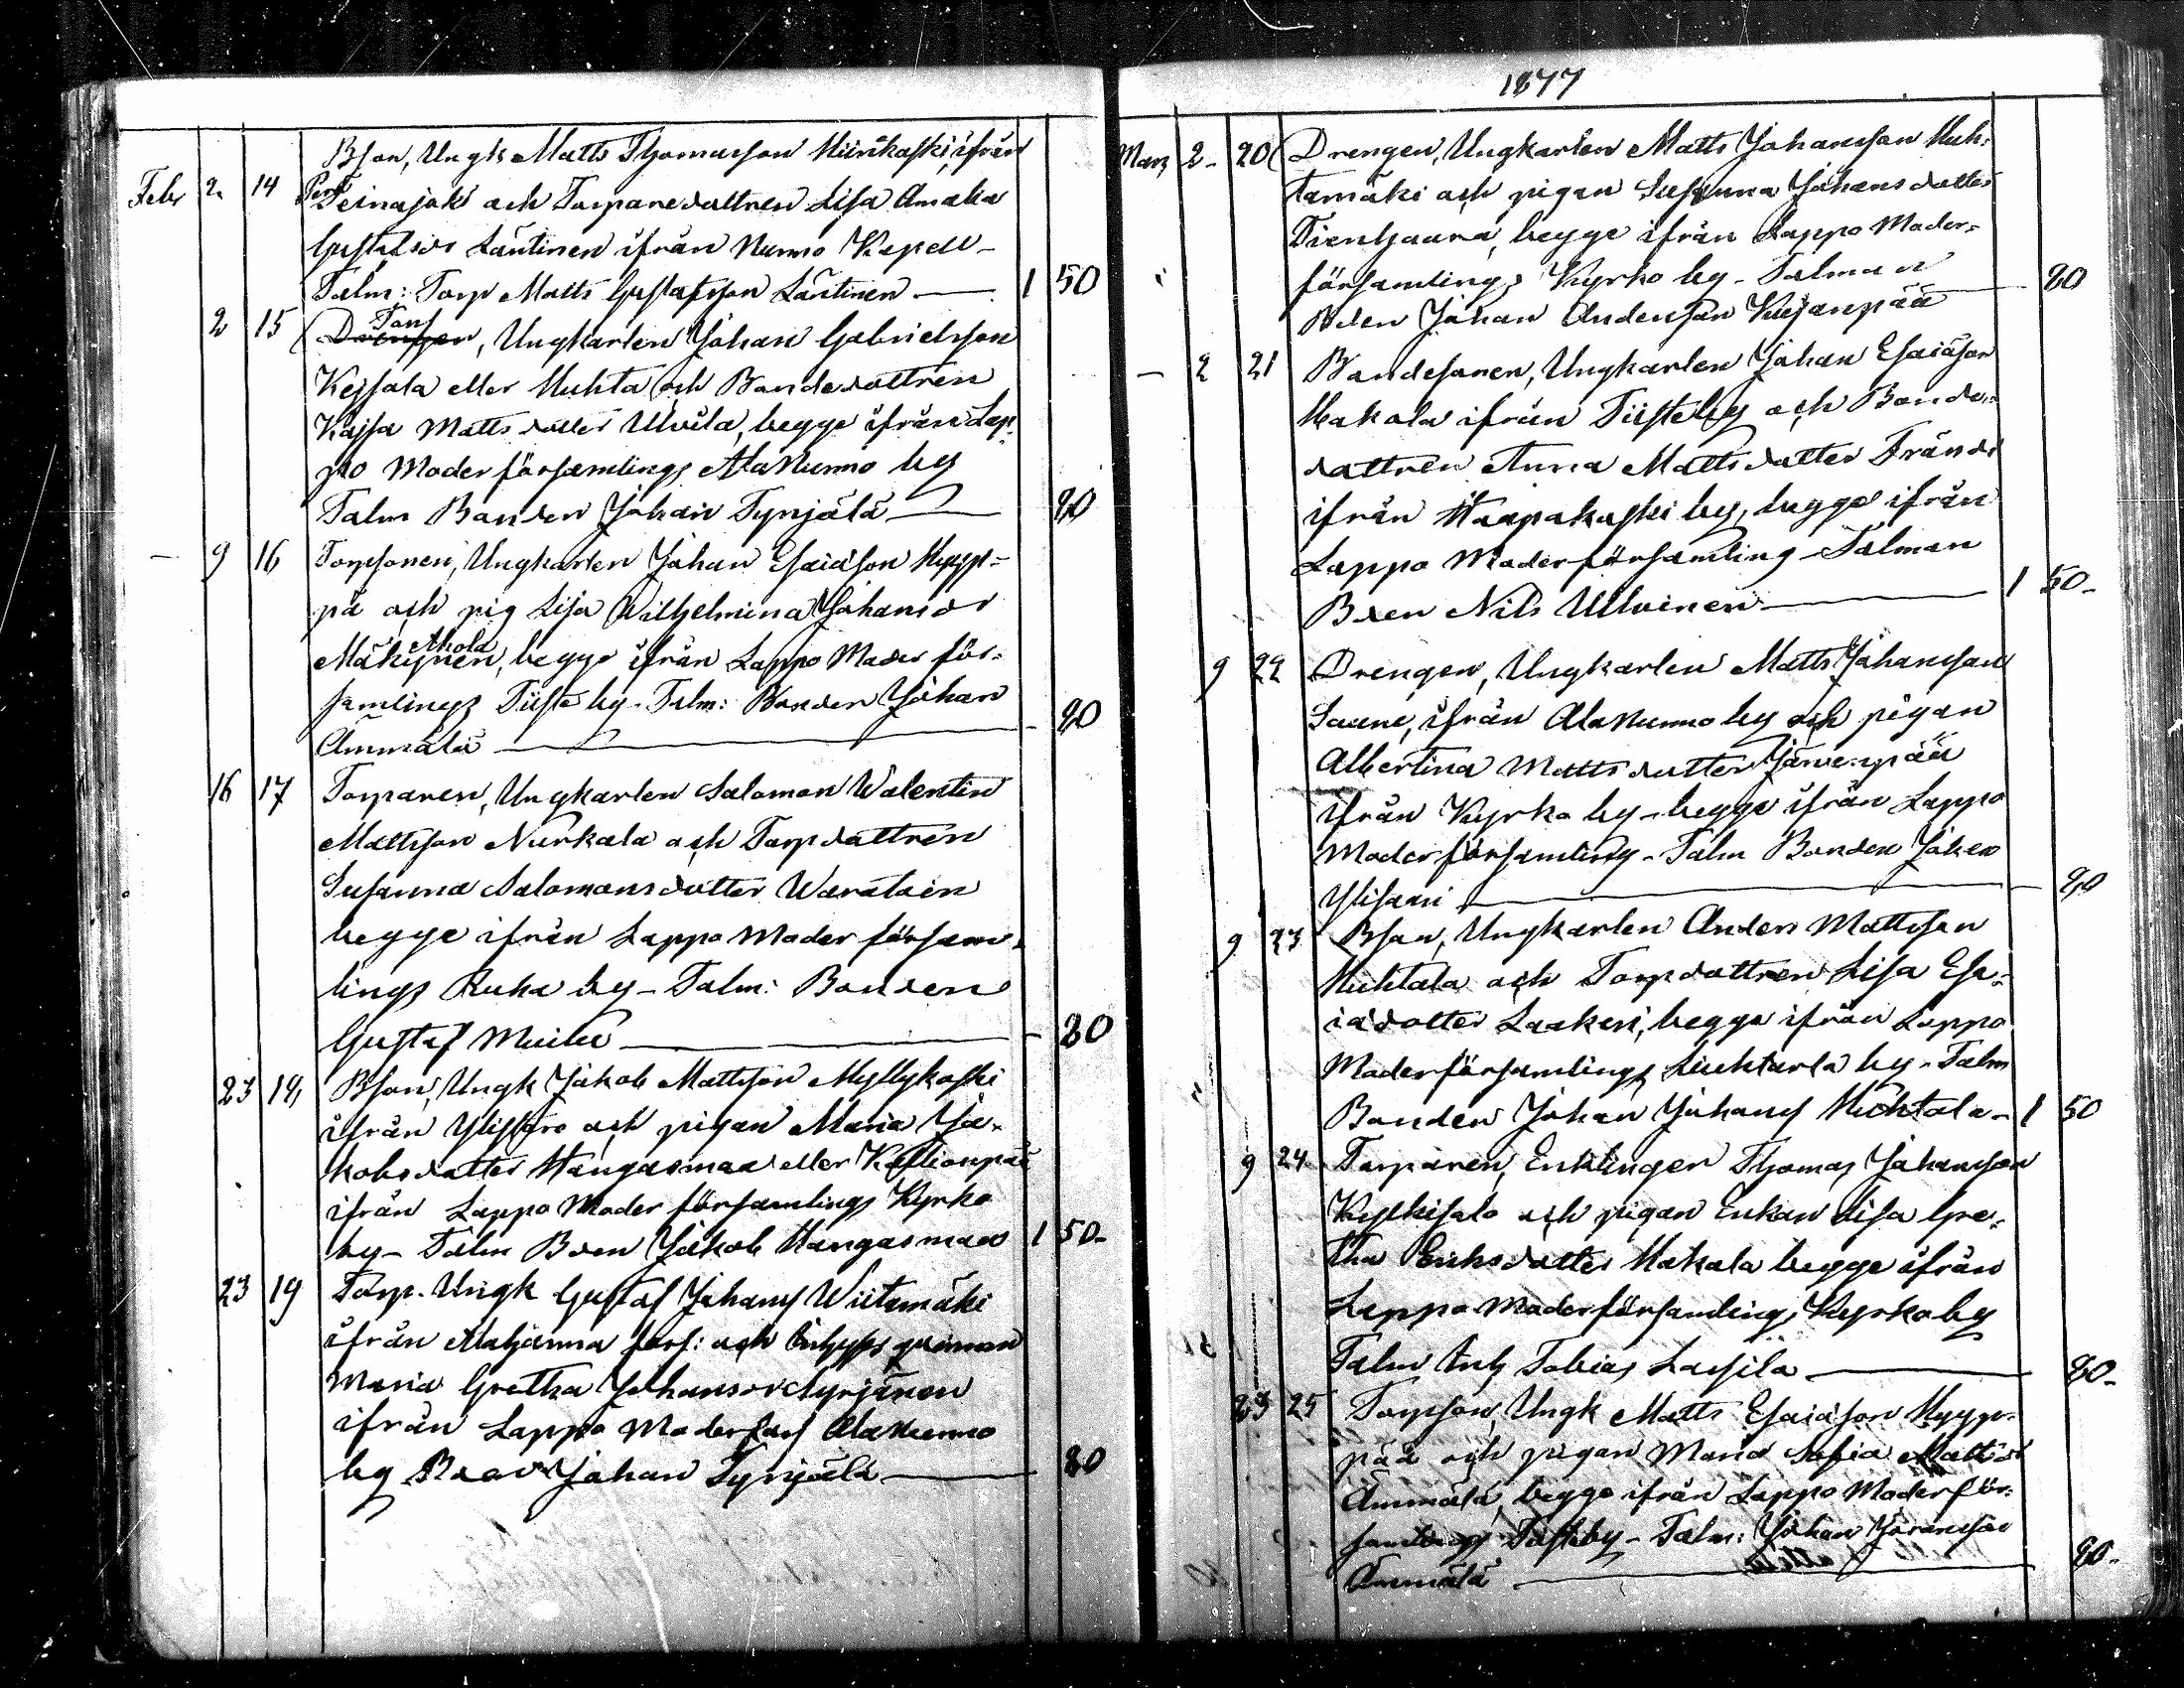 Bson, Ungk Matts Thomasson Miirikoski, ifrån
Febr 2 14 Peinajoki och Torparedottren Lisa Amalia
Gustafsdr Läntinen ifrån Nurmo Kapell-
Talm: Torp Matts Gustafsson Läntinen — 1 50
2 15 Drengen, Ungkarlen Johan Gabrielsson
Keisala eller Huhta och Bondedottren
Kajsa Mattsdotter Ulvila, begge ifrån Lap-
po Moderförsamlings AlaNurmo by
Talm Bonden Johan Tynjälä — 80
— 9 16 Torpsonen, Ungkarlen Johan Esaiasson Hyyp-
pä och pig Lisa Wilhelmina Johansdr
Akola
Mäkynen, begge ifrån Lappo Moder för-
samlings Tiiste by - Talm: Bonden Johan
Ämmälä — 80
16 17 Torparen, Ungkarlen Salomon Walentin
Mattsson Nurkala och Torpdottren
Susanna Salomonsdotter
begge ifrån Lappo Moder försam-
lings Ruha by - Talm: Bonden
Gustaf — 80
23 18 Bson, Ungk Jakob Mattsson Myllykoski
ifrån Ylistaro och pigan Maria Ja-
kobsdotter Hangasmaa eller
ifrån Lappo Moder församlings Kyrko
by - Talm Bden Jakob Hangasmaa 1 50-
23 19 Torp. Ungk Gustaf Johans Wiitamäki
ifrån Alahärmä förs: och
Maria Gretha Johansdr
ifrån Lappo Moderförs AlaNurmo
by Johan Tynjälä — 80
1877
Mars 2- 20 Drengen, Ungkarlen Matts Johansson Huh-
tamäki och pigan Susanna Johansdotter
Tienhaara, begge ifrån Lappo Moder-
församlings Kyrko by - Talman 80
Bden Johan Andersson
— 2 21 Bondesonen, Ungkarlen Johan Esaiasson
Makala ifrån Tiisteby och Bonde-
dottren Anna Mattsdotter Frändi
ifrån Haapakoski by, begge ifrån
Lappo Moderförsamling - Talman
Bden Nils Ulvinen — 1 50-
9 22 Drengen, Ungkarlen Matts Johansson
Saari, ifrån AlaNurmo by och pigan
Albertina Mattsdotter Järvenpää
ifrån Kyrko by - begge ifrån Lappo
Moderförsamling - Talm Bonden Johan
Ylisaari — 80
9 23 Bson, Ungkarlen Anders Mattsson
Huhtala och Torpdottren Lisa Esa-
iädotter Laakeri, begge ifrån Lappo
Moderförsamlings Liuhtarla by - Talm
Bonden Johan Johans Huhtala - 1 50
9 24 Torparen, Enklingen Thomas Johansson
Kuhkisalo och pigan Enkan Lisa Gre-
tha Eriksdotter Makala begge ifrån
Lappo Moderförsamlings Kyrkoby
Talm Tobias Lassila — 80-
23 25 Torpson, Ungk Matts Esaiasson Hyyp-
pää och pigan Maria Sofia Mattsdr
Ämmälä, begge ifrån Lappo Moderför-
samlings Tiisteby - Talm: Johan Joransson
Ämmälä — 80-